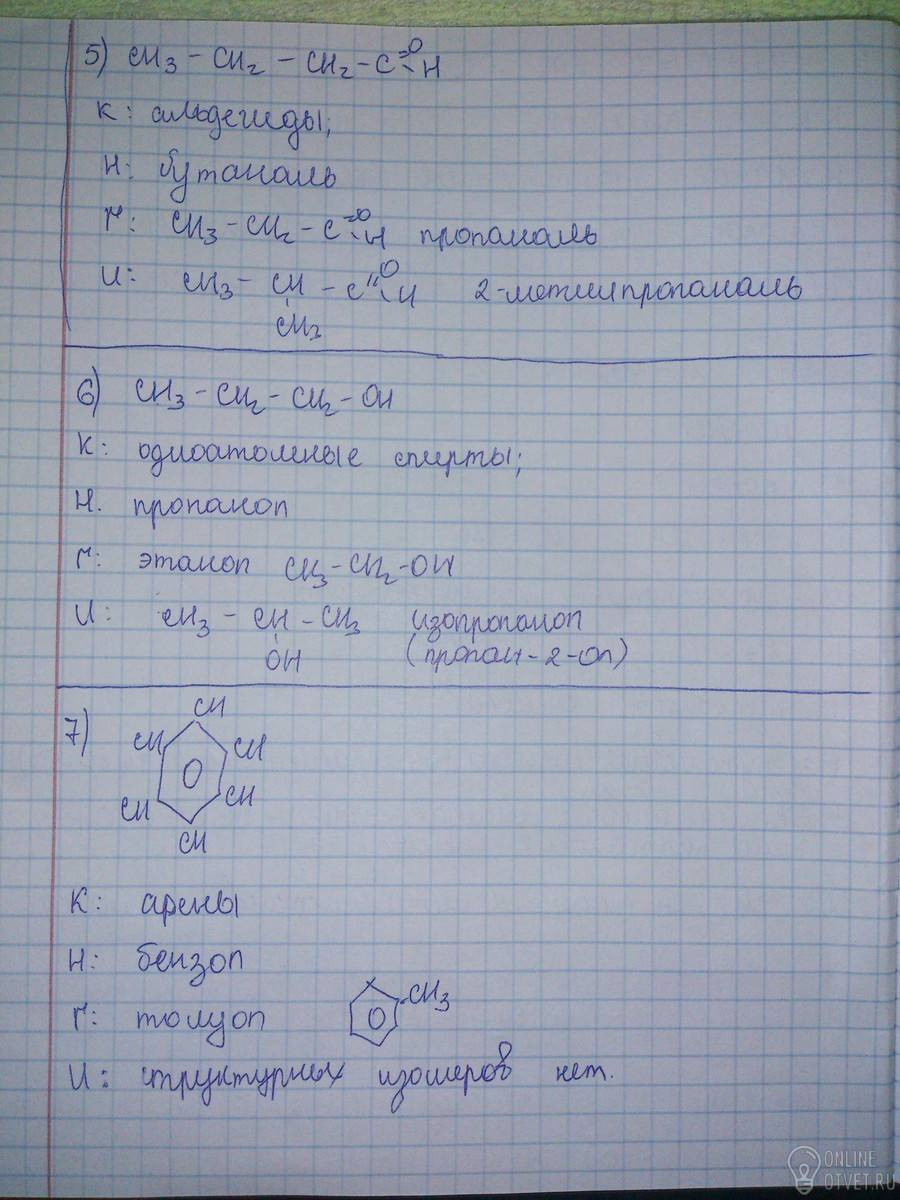 5) CH3 - CH2 - CH2 - C =O - H
К: альдегиды;
Н: бутаналь
Г: CH3 - CH2 - C =O - H пропаналь
И: CH3 - CH - C =O - H 2-метилпропаналь
CH3
6) CH3 - CH2 - CH2 - OH
К: одноатомные спирты;
Н. пропанол
Г: этанол CH3 - CH2 - OH
И: CH3 - CH - CH3 изопропанол
OH (пропан-2-ол)
7) CH
CH CH
CH CH
CH
К: арены
Н: бензол
Г: толуол CH3
И: структурных изомеров нет.
ONLINE
OTVET.RU